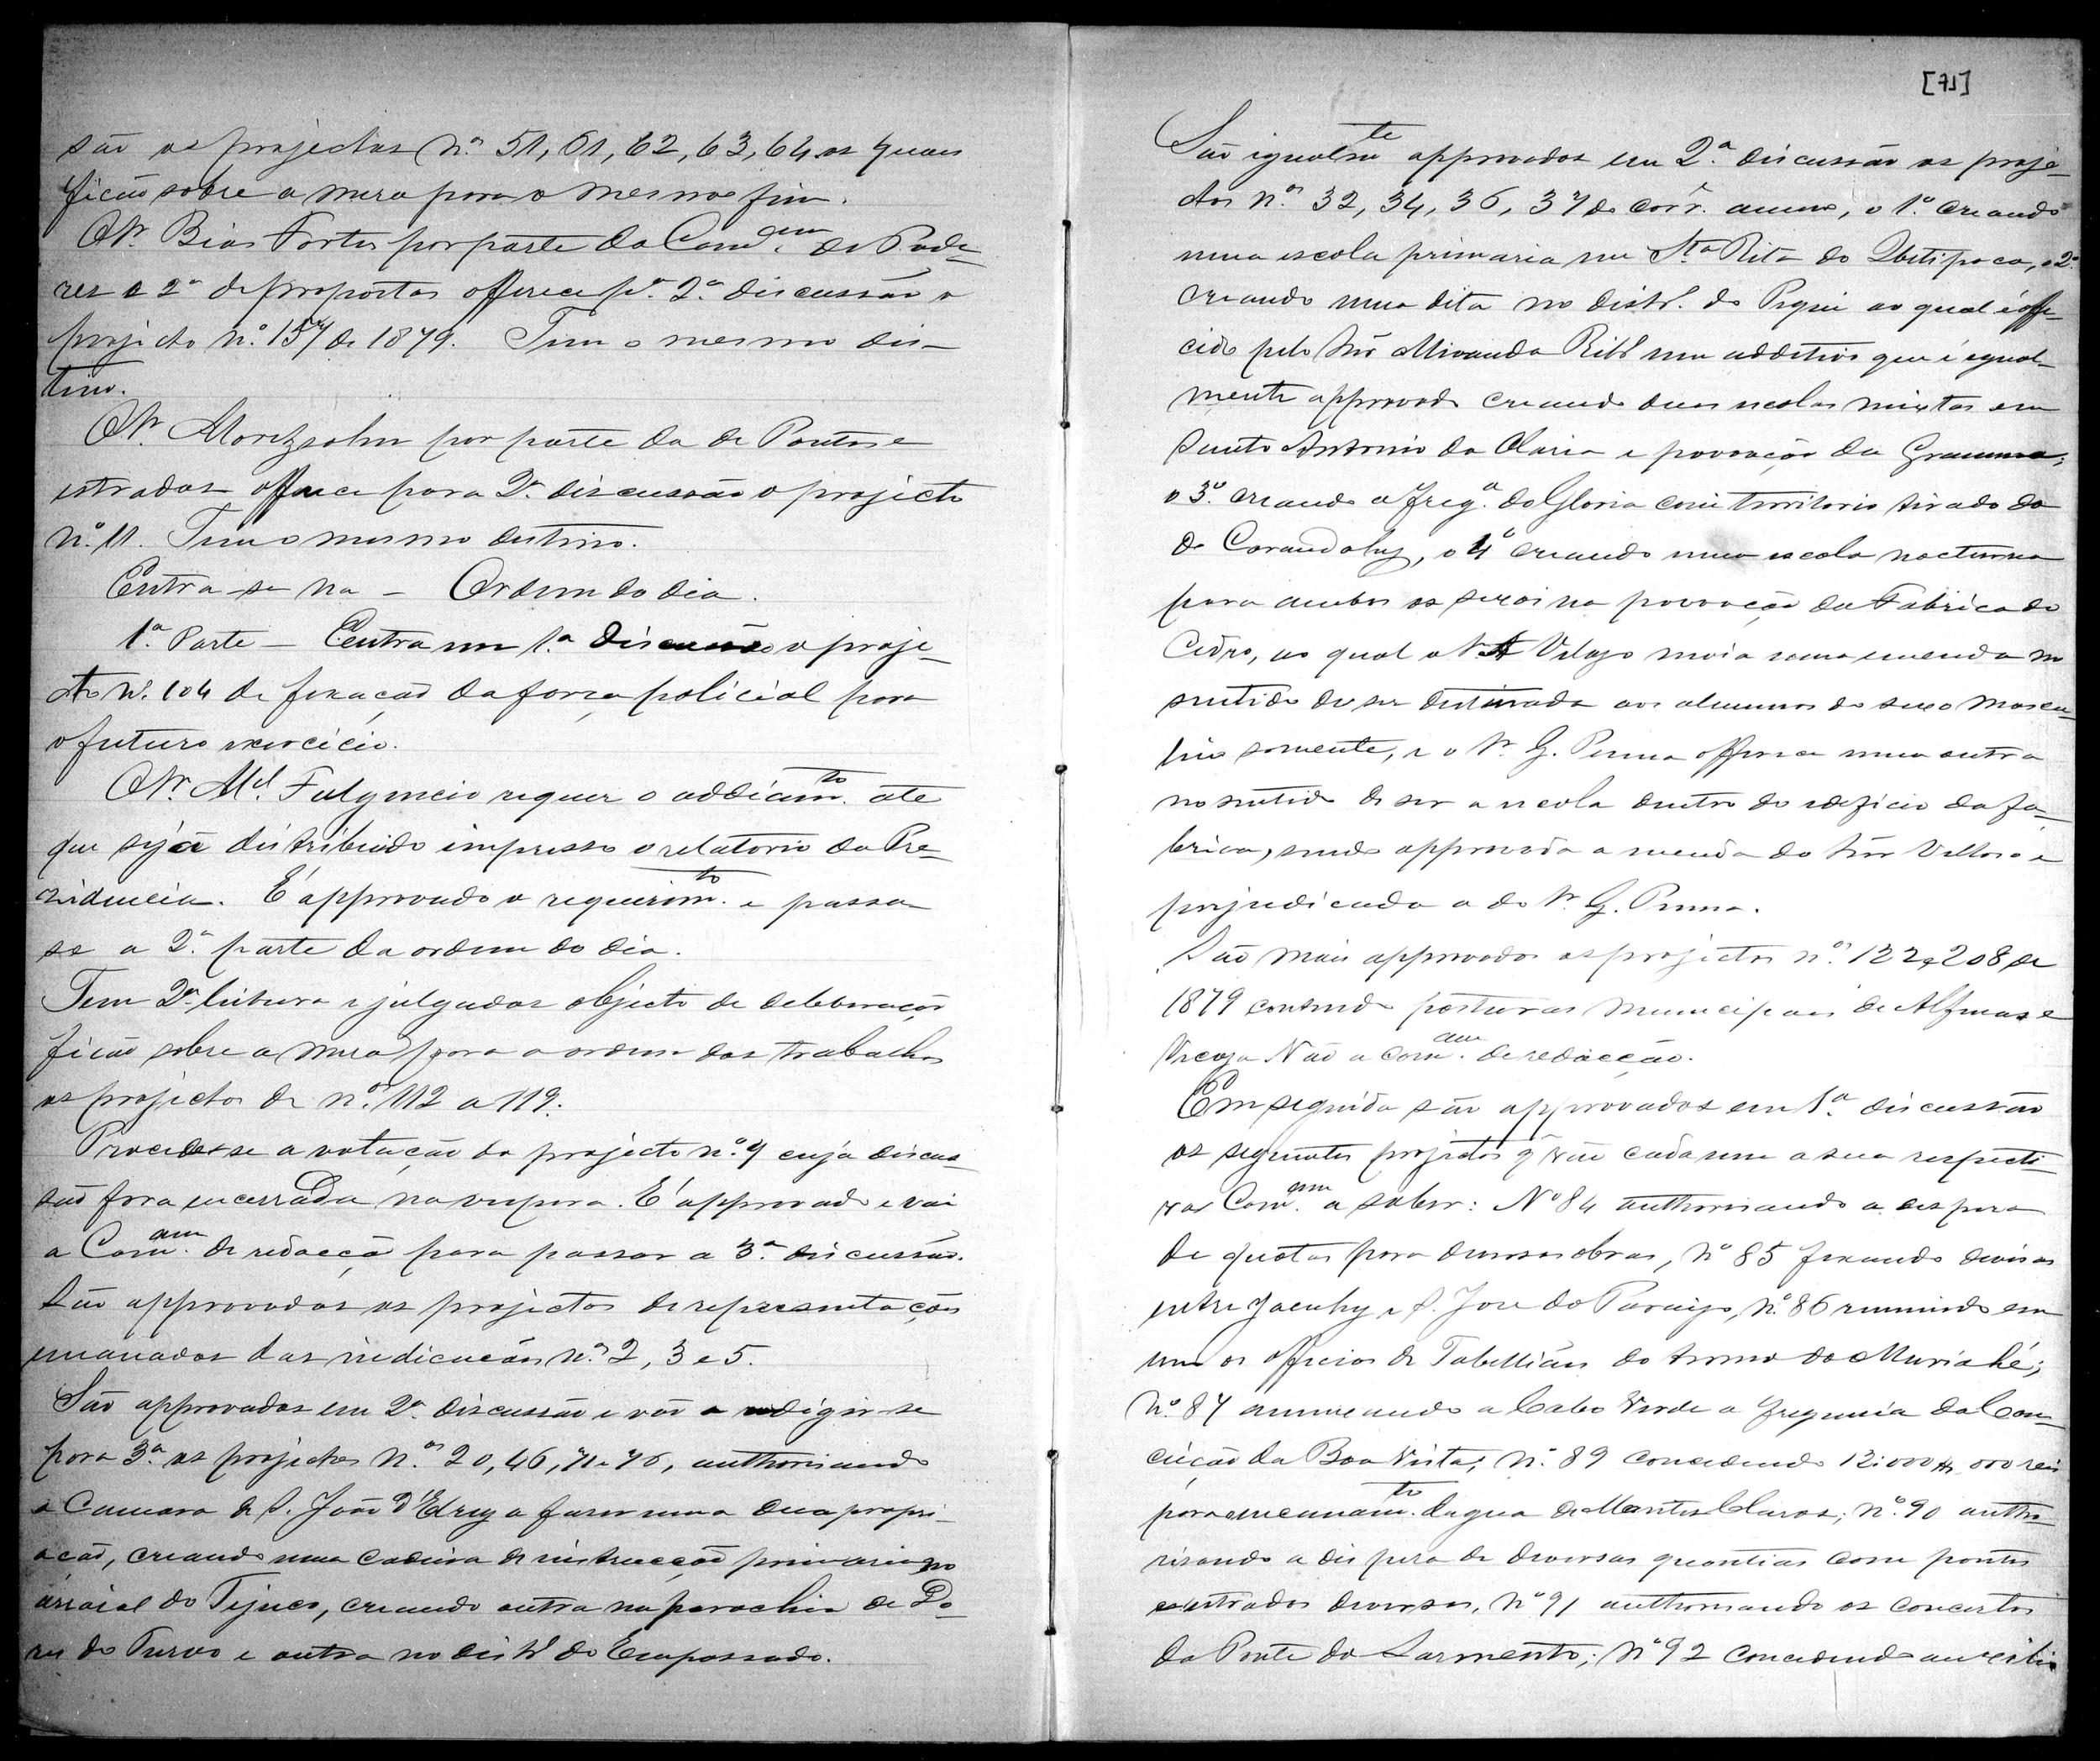 são os projectos Nos 51, 61, 62, 63, 64 os quaes
ficão sobre a mesa para o mesmo fim.
O Sr. Bias Fortes por parte da Comm.am de Pode-
res e 2a de propostas offerece pa. 2a. discussão o
projecto n.o 157 de 1879. Tem o mesmo des-
tino.
O Sr. Moretzsohn por parte da de Pontes e
estradas offerece para 2a. discussão o projecto
n.o 11. Tem o mesmo destino.
Entra-se na - Ordem do dia.
1.a Parte - Entra em 1.a discussão o proje-
cto N.o 104 de fixação da força policial para
o futuro exercicio.
O Sr. Ml. Fulgencio requer o addiam.to até
que seja distribuido impresso o relatorio da Pre-
zidencia. É approvado o requerim.to e passa
se a 2.a parte da ordem do dia.
Tem 2a. leitura e julgados objecto de deliberação
ficão sobre a mesa para a ordem dos trabalhos
os projectos de n.os 112 a 119.
Procede-se a votação do projecto n.o 9 cuja discus-
são fora encerrada na vespera. É approvado e vai
a Com.am de redacção para passar a 3.a discussão.
São approvados os projectos de representações
emanados das indicações n.os 2, 3 e 5.
São approvados em 2a. discussão e vão a redigir-se
para 3.a os projectos N.os 20, 46, 71 e 76, authorisando
a Camara de S. João d'ElRey a fazer uma desapropri-
ação, creando uma cadeira de instrucção primaria no
arraial do Tijuco, creando outra na parochia de Do-
res do Turvo e outra no distr.o do Empossado.
[71]
São igualm.te approvados em 2.a discussão os proje-
ctos N.os 32, 34, 36, 37 do corr. anno, o 1.o creando
uma escola primaria em Sta Rita do Ibitipoca, o 2o
creando uma dita no distr.o do Pequi ao qual é offe-
cido pelo Snr Miranda Ribr um additivo que é egual-
mente approvado creando duas escolas mixtas em
Santo Antonio da Olaria e povoação da Gramma;
o 3.o creando a freg.a da Gloria com territorio tirado da
de Carandahy, o 4o creando uma escola nocturna
para ambos os sexos na povoação da Fabrica do
Cedro, ao qual o Sr A Velozo envia uma emenda no
sentido de ser destinada aos alumnos do sexo mascu-
lino somente, e o Sr. G. Penna offerece uma outra
no sentido de ser a escola dentro do edificio da fa-
brica, sendo approvada a emenda do Snr Vellozo e
prejudicada a do Sr. G. Penna.
São mais approvados os projectos n.os 122 e 208 de
1879 contendo posturas municipaes de Alfenas e
Viçoza Vão a Com.am de redacção.
Em seguida são approvados em 1.a discussão
os seguintes projectos q vão cada um a sua respecti-
vas Com.am a saber: No 84 authorisando a despeza
de quotas para diversas obras, No 85 fixando divisas
entre Jacuhy e S. Jose do Paraiso, N.o 86 reunindo em
um os officios de Tabelliães do termo do Muriahé;
N.o 87 annexando a Cabo Verde a freguezia da Con-
ceição da Boa Vista; N.o 89 concedendo 12:000$000 reis
para encanam.to dagua de Montes Claros; n.o 90 autho-
risando a despeza de diversas quantias com pontes
e estradas diversas, No 91 authorisando os concertos
da Ponte do Sarmento; No 92 concedendo auxilio